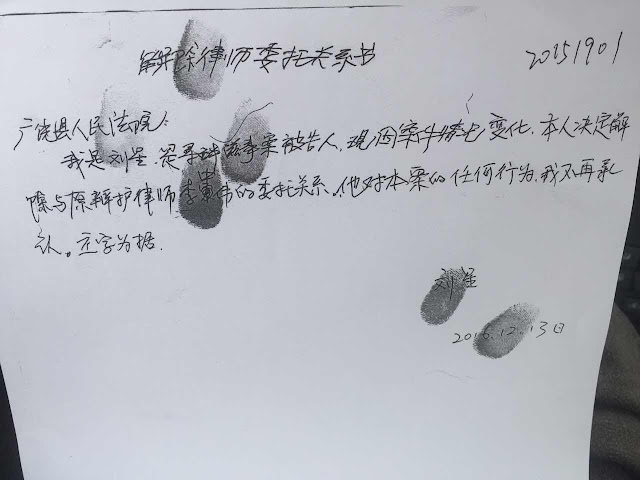 解除律师委托关系书
20151901
广饶县人民法院:
我是刘星,是寻衅滋事案被告人,现因案件情况变化,本人决定解
除与原辩护律师李 伟的委托关系。他对本案的任何行为,我不再承
认。立字为据.
刘星
2016.12.13日